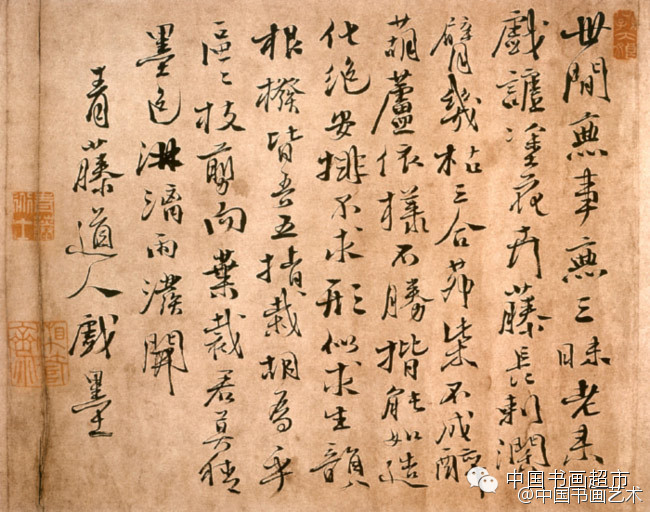 世間無事無三昧老来
戲謔塗花卉藤長刺濶
臂幾枯三合茅柴不成醉
葫蘆依樣不勝揩能如造
化絶安排不求形似求生韻
根撥皆吾五指栽胡為乎
區々枝剪而葉裁君莫猜
墨色淋漓雨潑開
青藤道人戲墨
中国书画超市
@中国书画艺术